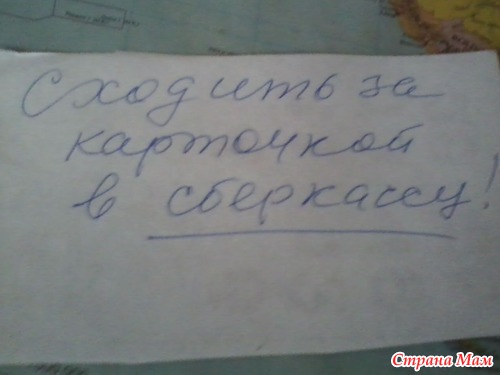 Сходить за
карточкой
в сберкассу!
Страна Мам